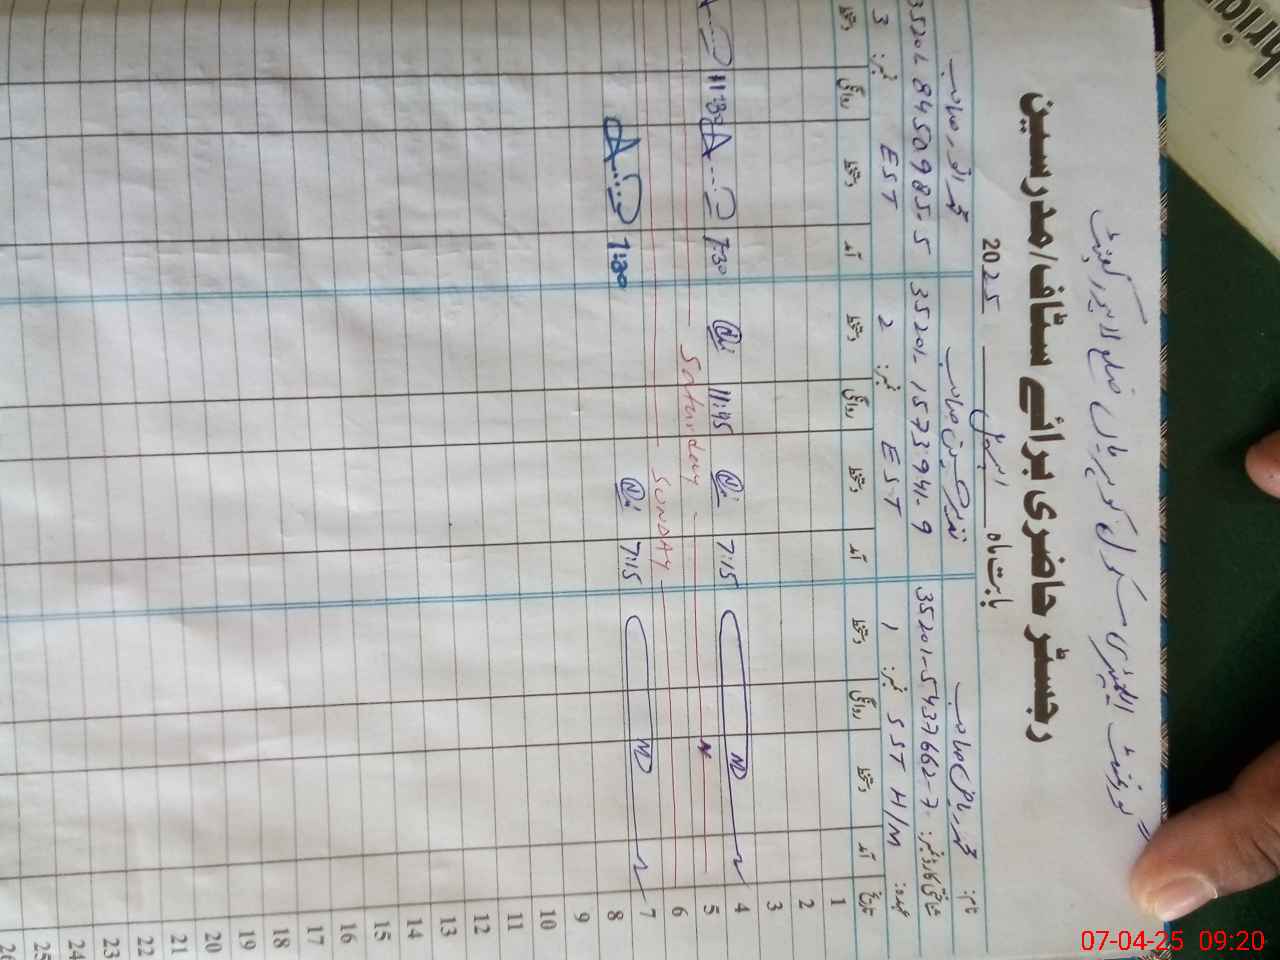 رجسٹر حاضری برائے سٹاف/مدرسین
بابت ماہ اپریل 2025
نام: محمد ریاض صاحب
تنویر حسین صاحب
محمد انور صاحب
شناختی کارڈ نمبر: 35201-5437662-7
35201-1573941-9
35202 8450985-5
عہدہ: SST H/M نمبر: 1
EST نمبر: 2
EST نمبر: 3
تاریخ آمد دستخط روانگی دستخط آمد دستخط روانگی دستخط آمد دستخط روانگی دستخط
1
2
3
4 7:15 11:45 7:30 11:30
5 Saturday
6 SUNDAY
7 7:15 7:30
8
9
10
11
12
13
14
15
16
17
18
19
20
21
22
23
24
25
26
07-04-25 09:20